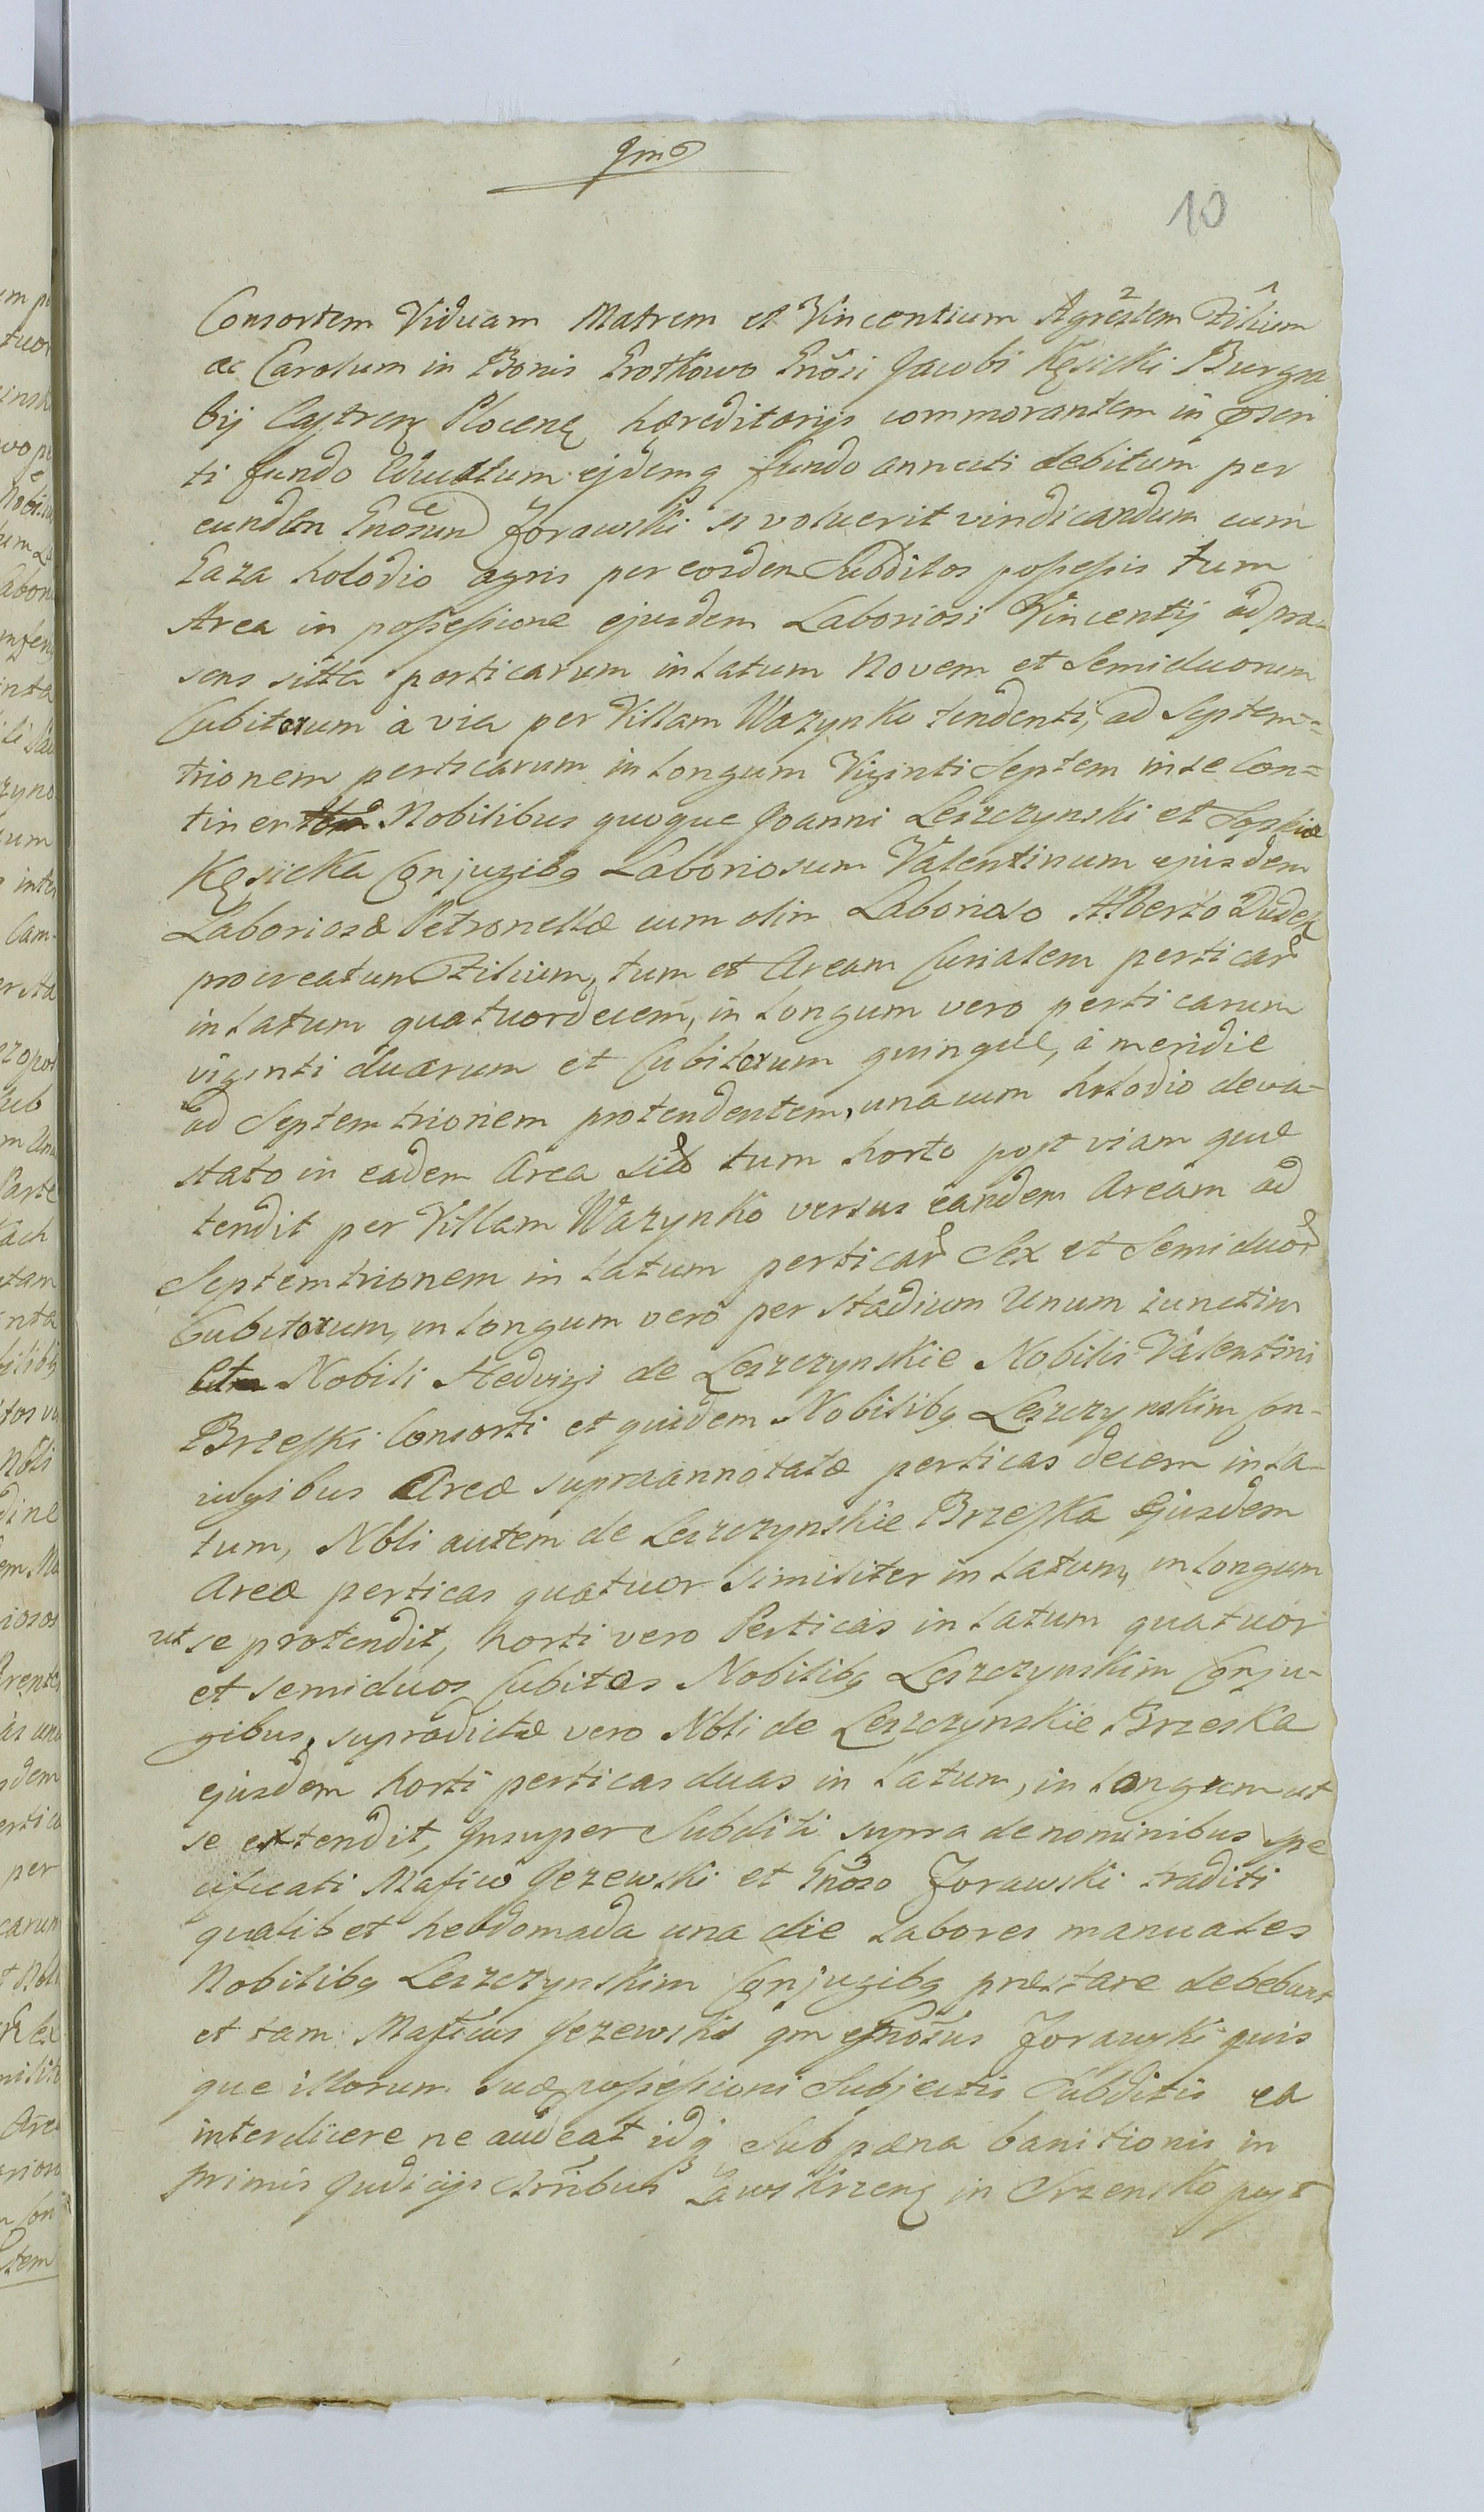 qmo
10
Consortem Viduam Matrem et Vincentium Agrestem Filium
ac Carolum in Bonis Srotkowo Gnosi Jacobi Kęsicki Burgra
bij Castren Plocen hæreditarijs commorantem in præsen
ti fundo Educatum ejdemq fundo annecti debitum per
eundem Gnosum Zorawski si voluerit vindicandum cum
Gaza holodio agris per eosdem Subditos possessis tum
Area in possessione ejusdem Laboriosi Vincentij ad præ
sens sitta perticarum in latum Novem et Semiduorum
Cubitorum à via per Villam Wazynko tendenti, ad Septem=
trionem perticarum in longum Viginti Septem in se Con=
tinen Nobilibus quoque Joanni Leszczynski et Sophiæ
Kęsicka Conjugibq Laboriosum Valentinum ejusdem
Laboriosæ Petronellæ cum olim Laborioso Alberto Dudek
procreatum Filium, tum et Aream Curialem perticar
in latum quatuordecem, in longum vero perticarum
viginti duarum et Cubitorum quinque, à meridie
ad Septemtrionem protendentem, una cum holodio deva-
stato in eadem Area sito tum horto post viam quæ
tendit per Villam Wazynko versus eandem Aream ad
Septemtrionem in latum perticar Sex et Semiduor
Cubitorum, in longum vero per stadium Unum iunctim
Nobili Hedvigi de Leszczynskie Nobilis Valentini
Brzeski Consorti et quidem Nobilibq Leszczynskim Con-
iugibus Areæ supraannotatæ perticas decem in la-
tum, Nbli autem de Leszczynskie Brzeska Ejusdem
Areæ perticas quatuor similiter in latum, in longum
ut se protendit, horti vero Perticas in latum quatuor
et semiduos Cubitos Nobilibq Leszczynskim Conju-
gibus, supradictæ vero Nbli de Leszczynskie Brzeska
ejusdem horti perticas duas in latum, in longum ut
se extendit, Insuper Subditi supra de nominibus spe
cificati Mafico Jezewski et Gnoso Zorawski traditi
qualibet hebdomada una die labores manuales
Nobilibq Leszczynskim Conjugibq præstare debebunt
et tam Maficus Jezewski qm Gnosus Zorawski quis
que illorum suæ possessioni Subjectis Subditis ea
interdicere ne audeat idq Sub pæna banitionis in
primis Judicijs Ctrribus Zawskrzen in Srzensko post